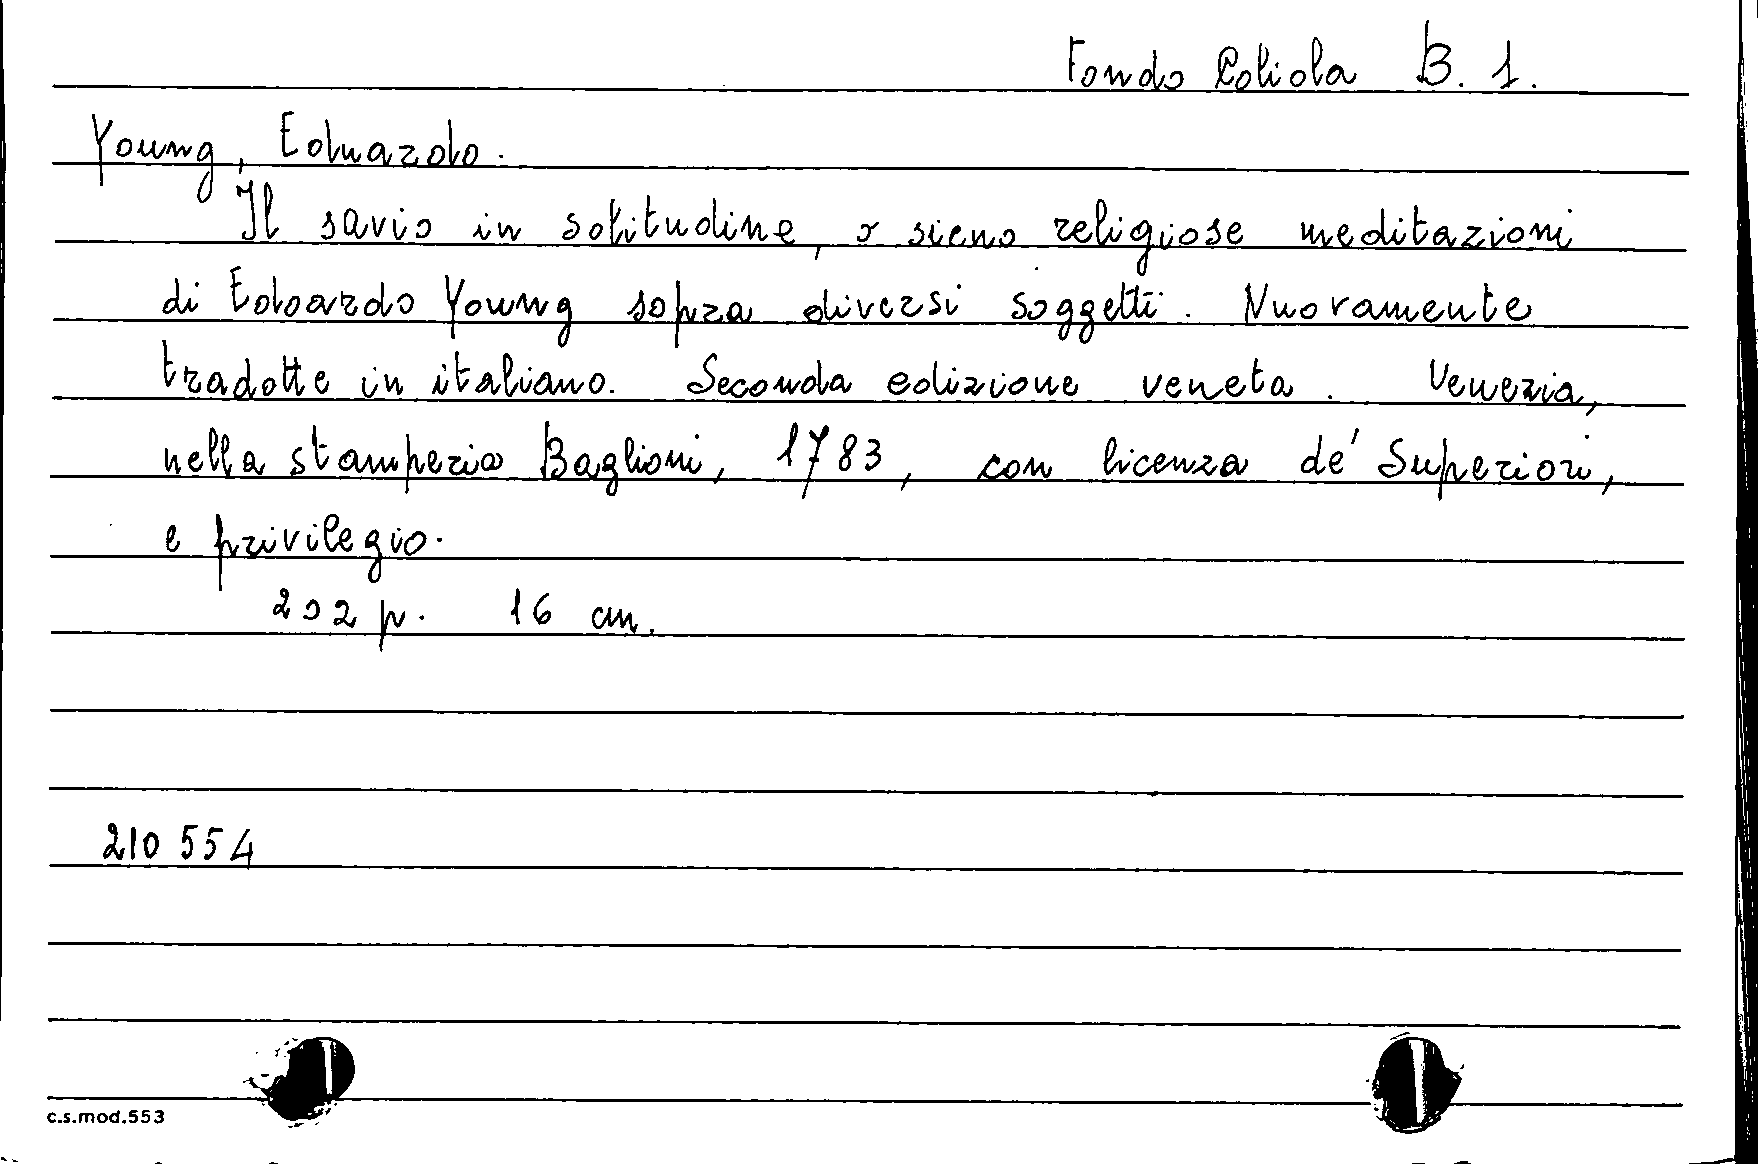 Fondo Coliola B. 1.
Young, Eduardo.
Il savio in solitudine, o sieno religiose meditazioni
di Edoardo Young sopra diversi soggetti. Nuovamente
tradotte in italiano. Seconda edizione veneta. Venezia,
nella stamperia Baglioni, 1783, con licenza de' Superiori,
e privilegio.
202 p. 16 cm.
210 554
c.s.mod.553